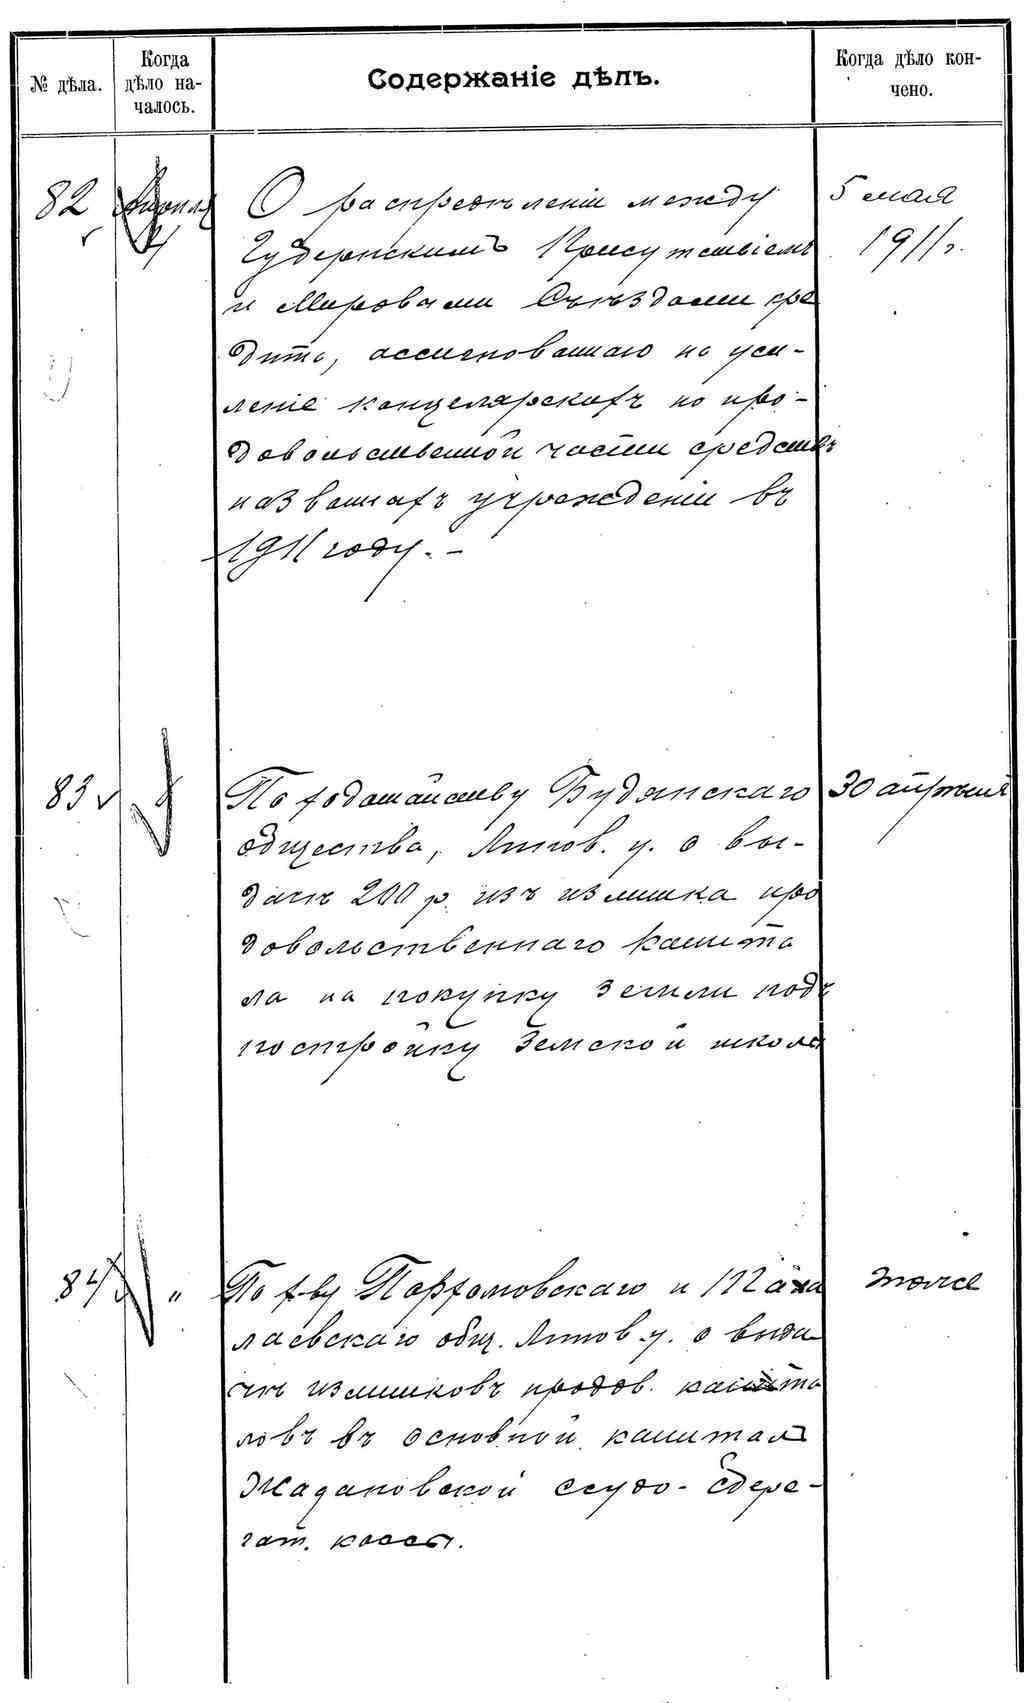 № дѣла.
Когда
дѣло на-
чалось.
Содержаніе дѣлъ.
Когда дѣло кон-
чено.
82
Апрѣля
4
О распредѣленіи между
Губернскимъ Присутствіемъ
и Мировыми Съѣздами кре
дита, ассигнованнаго на уси-
леніе канцелярскихъ по про-
довольственной части средствъ
названныхъ учрежденій въ
1911 году. -
5 мая
1911 г.
83
По ходатайству Будянскаго
общества, Липов. у. о вы-
дачѣ 200 р. изъ излишка про
довольственнаго капита
ла на покупку земли подъ
постройку Земской школы
30 апрѣля
84
"
По х-ву Пархомовскаго и
лаевскаго общ. Липов. у. о выда
чѣ излишковъ продов. капита
ловъ въ основной капиталъ
Жадановской ссудо-сбере-
гат. кассы.
тоже